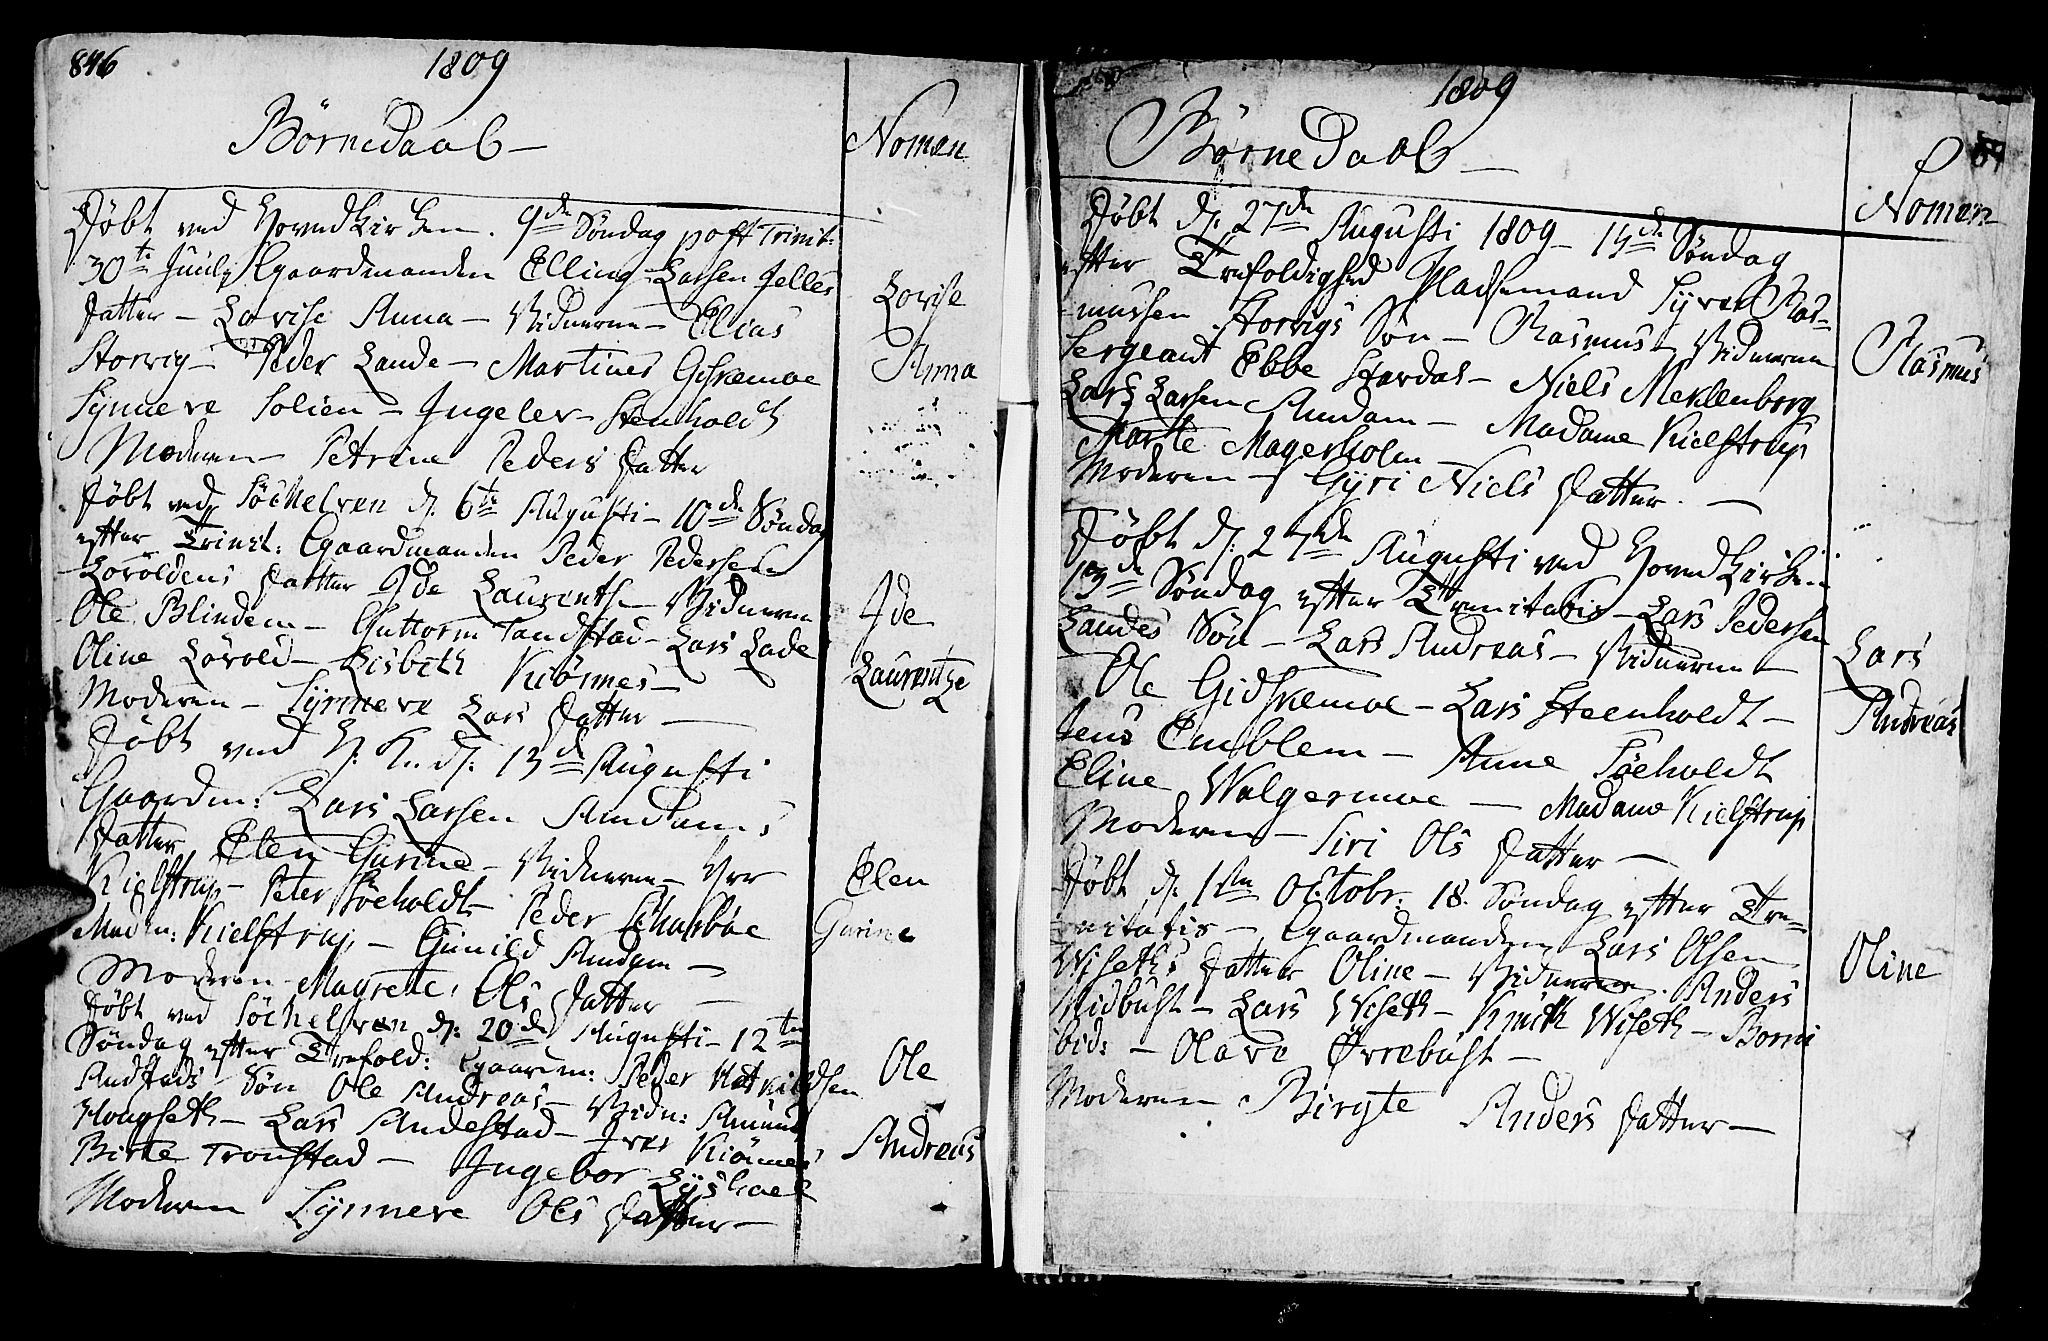 846
1809
Børnedaab
Nomen
Døbt ved Hovedkirken. 9de Søndag post Trinit:
30te Juulj Gaardmanden Elling Larsen Jelles
Datter - Lovise Anna - Vidnerne - Elias
Storvig - Peder Lande - Martines Gidskemoe
Synneve Solien - Ingeler Stenholdt
Moderen - Petrine Peders Datter
Lovise
Anna
Døbt ved Søchelven d: 6te Augusti - 10de Søndag
efter Trinit: Gaardmanden Peder Pedersen
Lovoldens Datter Ide Laurentse - Vidnerne
Ole Blindem - Guttorm Tandstad - Lars Lade
Oline Lovold - Lisbeth Kiönnes -
Moderen - Synneve Lars Datter -
Ide
Laurentze
Døbt ved H. K. d: 13de Augusti
Gaardm: Lars Larsen Amdams
Datter Elen Gurine - Vidnerne - Hrr
Kielstrup - Peter Söeholdt - Peder Scharbøe
Madm: Kielstrup, - Gunild Amdam -
Moderen - Magrete Ols Datter -
Elen
Gurine
Døbt ved Søchelven d: 20de Augusti - 12te
Søndag efter Trefold: Gaardm: Peder
Andstads Søn Ole Andreas - Vidn: Amund
Hougseth - Lars Andestad - Iver Kiönnes
Birte Tronstad - Ingebor Lyshoel
Moderen Synneve Ols Datter -
Ole
Andreas
1809
Børnedaab
Nomen
Døbt d: 27de Augusti 1809 - 13de Søndag
efter Trefoldighed Pladsemand Syver Ras-
mussen Storvigs Søn - Rasmus - Vidnerne
Sergeant Ebbe Stordal - Niels Meklenborg
Lars Larsen Amdam - Madame Kielstrup
Marte Magerholm -
Moderen - Gyri Niels Datter. -
Rasmus
Døbt d: 27de Augusti ved Hovedkirken
13de Søndag efter Trenitatis - Lars Pedersen
Landes Søn - Lars Andreas - Vidnerne -
Ole Gidskemoe - Lars Steenholdt -
Jens Emblem - Anne Söeholdt
Eline Walgermoe - Madame Kielstrup
Moderen - Siri Ols Datter -
Lars
Andreas
Døbt d: 1ste Octobr. 18. Søndag efter Tre-
nitatis - Gaardmanden Lars Olsen
Wiseths Datter Oline - Vidnerne. Anders
Midbust - Lars Wiseth - Knuth Wiseth - Borni
ibid: - Olave Ørrebust -
Moderen Birgte Anders Datter -
Oline